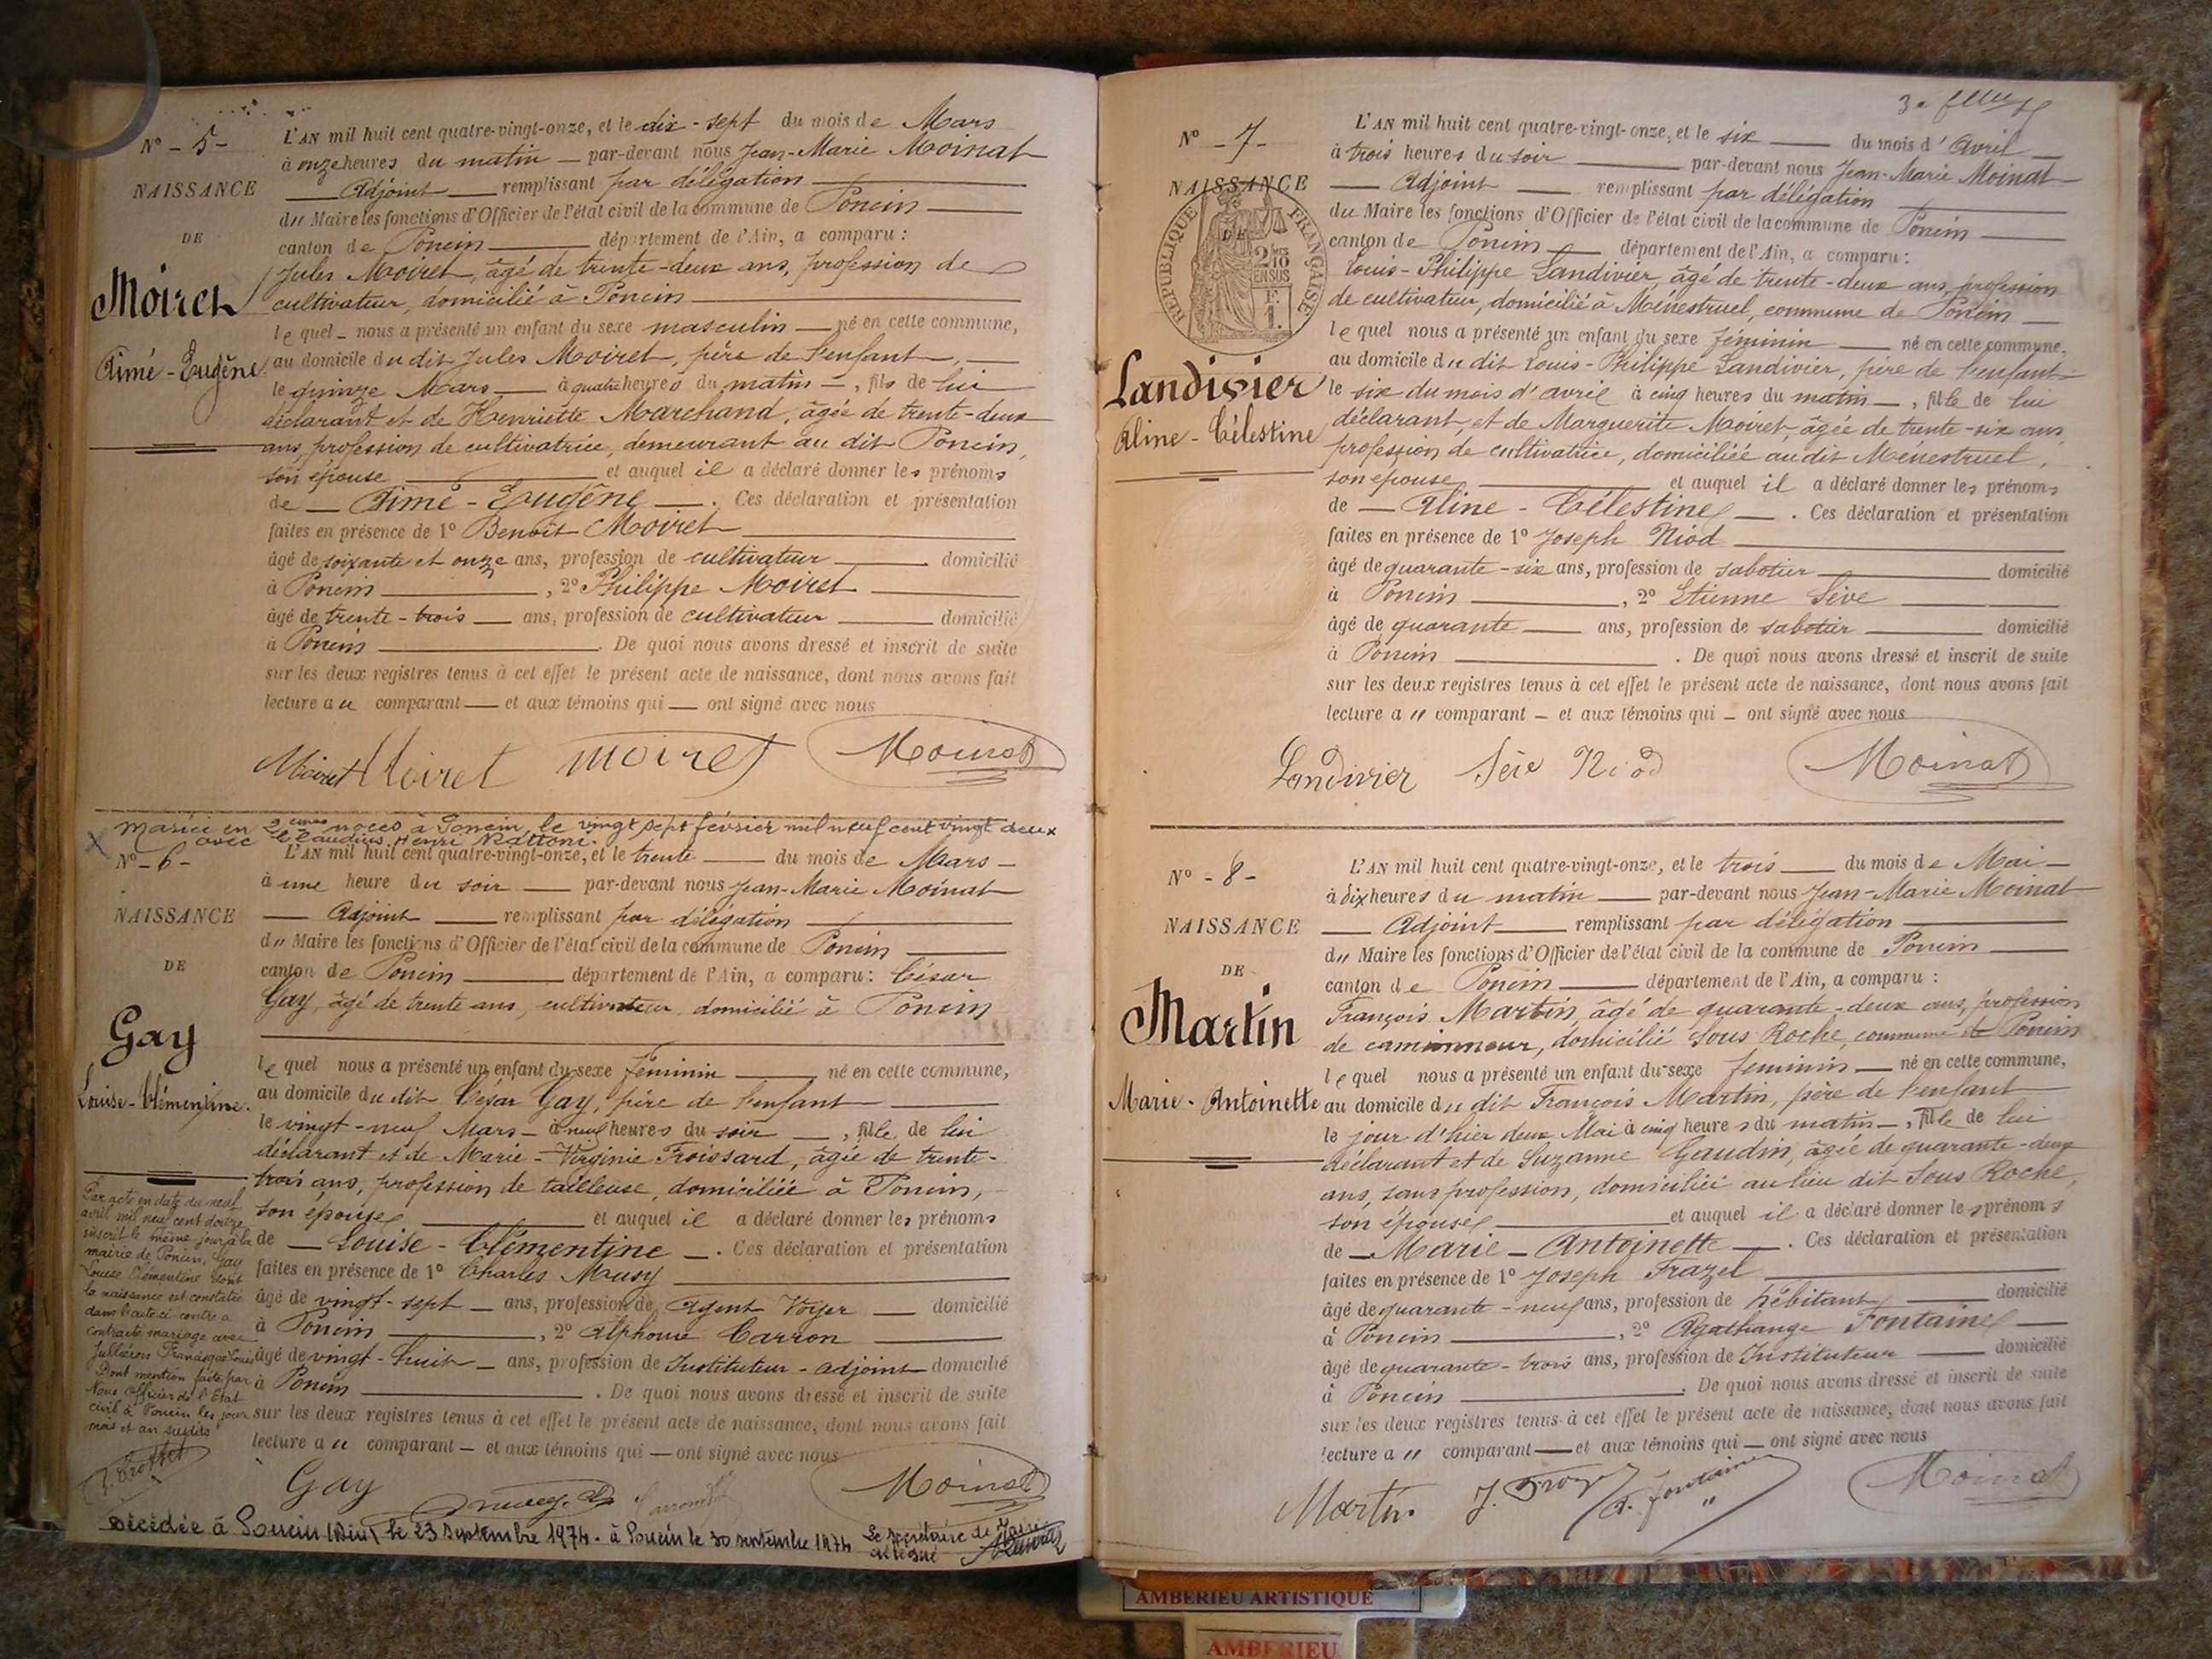 N° - 5 -
NAISSANCE
DE
Moiret
Aimé-Eugène
L'AN mil huit cent quatre-vingt-onze, et le dix-sept du mois de Mars
à onze heures du matin — par-devant nous Jean-Marie Moinat
Adjoint — remplissant par délégation
du Maire les fonctions d'Officier de l'état civil de la commune de Poncin
canton de Poncin — département de l'Ain, a comparu :
Jules Moiret, âgé de trente-deux ans, profession de
cultivateur, domicilié à Poncin
lequel - nous a présenté un enfant du sexe masculin — né en cette commune,
au domicile du dit Jules Moiret, père de l'enfant,
le quinze Mars — à quatre heures du matin —, fils de lui
déclarant et de Henriette Marchand, âgée de trente-deux
ans, profession de cultivatrice, demeurant au dit Poncin,
son épouse — et auquel il a déclaré donner les prénoms
de — Aimé-Eugène — . Ces déclaration et présentation
faites en présence de 1° Benoît Moiret
âgé de soixante et onze ans, profession de cultivateur — domicilié
à Poncin —, 2° Philippe Moiret
âgé de trente-trois — ans, profession de cultivateur — domicilié
à Poncin — . De quoi nous avons dressé et inscrit de suite
sur les deux registres tenus à cet effet le présent acte de naissance, dont nous avons fait
lecture au comparant — et aux témoins qui — ont signé avec nous
Moiret Moiret moiret Moinat
Mariée en 2èmes noces à Poncin, le vingt sept février mil neuf cent vingt deux
avec Claudius Henri
N° - 6 -
NAISSANCE
DE
Gay
Louise-Clémentine.
L'AN mil huit cent quatre-vingt-onze, et le trente — du mois de Mars —
à une heure du soir — par-devant nous Jean-Marie Moinat
— Adjoint — remplissant par délégation
du Maire les fonctions d'Officier de l'état civil de la commune de Poncin
canton de Poncin — département de l'Ain, a comparu : César
Gay, âgé de trente ans, cultivateur, domicilié à Poncin
lequel nous a présenté un enfant du sexe féminin — né en cette commune,
au domicile du dit César Gay, père de l'enfant
le vingt-neuf Mars — à neuf heures du soir —, fille de lui
déclarant et de Marie-Virginie Froissard, âgée de trente-
trois ans, profession de tailleuse, domiciliée à Poncin,
son épouse — et auquel il a déclaré donner les prénoms
de — Louise-Clémentine — . Ces déclaration et présentation
faites en présence de 1° Charles Musy
âgé de vingt-sept — ans, profession de Agent Voyer — domicilié
à Poncin —, 2° Alphonse Carron
âgé de vingt-huit — ans, profession de Instituteur-adjoint domicilié
à Poncin — . De quoi nous avons dressé et inscrit de suite
sur les deux registres tenus à cet effet le présent acte de naissance, dont nous avons fait
lecture au comparant — et aux témoins qui — ont signé avec nous
Par acte en date du neuf
avril mil neuf cent douze
inscrit le même jour à la
mairie de Poncin, Gay
Louise Clémentine dont
la naissance est constatée
dans l'acte ci-contre a
contracté mariage avec
Jullièron Francisque Louis
Dont mention faite par
Nous Officier de l'Etat
civil à Poncin les jour
mois et an susdits
Gay Moinat
Décédée à Poncin (Ain) le 23 septembre 1974. à Poncin le 30 septembre 1974 Le secrétaire de Mairie
délégué
3e
N° - 7 -
NAISSANCE
DE
RÉPUBLIQUE FRANÇAISE
2/10
EN SUS
Landivier
Aline-Célestine
L'AN mil huit cent quatre-vingt-onze, et le six — du mois d'Avril —
à trois heures du soir — par-devant nous Jean-Marie Moinat
— Adjoint — remplissant par délégation
du Maire les fonctions d'Officier de l'état civil de la commune de Poncin
canton de Poncin — département de l'Ain, a comparu :
Louis-Philippe Landivier, âgé de trente-deux ans, profession
de cultivateur, domicilié à Ménestruel, commune de Poncin —
lequel nous a présenté un enfant du sexe féminin — né en cette commune,
au domicile du dit Louis-Philippe Landivier, père de l'enfant
le six du mois d'avril à cinq heures du matin —, fille de lui
déclarant, et de Marguerite Moiret, âgée de trente-six ans,
profession de cultivatrice, domiciliée au dit Ménestruel,
son épouse — et auquel il a déclaré donner les prénoms
de — Aline-Célestine — . Ces déclaration et présentation
faites en présence de 1° Joseph Niod
âgé de quarante-six ans, profession de sabotier — domicilié
à Poncin —, 2° Etienne Sève
âgé de quarante — ans, profession de sabotier — domicilié
à Poncin — . De quoi nous avons dressé et inscrit de suite
sur les deux registres tenus à cet effet le présent acte de naissance, dont nous avons fait
lecture au comparant — et aux témoins qui — ont signé avec nous
Landivier Sève Niod Moinat
N° - 8 -
NAISSANCE
DE
Martin
Marie-Antoinette
L'AN mil huit cent quatre-vingt-onze, et le trois — du mois de Mai —
à dix heures du matin — par-devant nous Jean-Marie Moinat
— Adjoint — remplissant par délégation
du Maire les fonctions d'Officier de l'état civil de la commune de Poncin
canton de Poncin — département de l'Ain, a comparu :
François Martin, âgé de quarante-deux ans, profession
de camionneur, domicilié Sous Roche, commune de Poncin
lequel nous a présenté un enfant du sexe féminin — né en cette commune,
au domicile du dit François Martin, père de l'enfant
le jour d'hier deux Mai à cinq heures du matin —, fille de lui
déclarant et de Suzanne Gaudin, âgée de quarante-deux
ans, sans profession, domiciliée au lieu dit Sous Roche,
son épouse — et auquel il a déclaré donner les prénoms
de — Marie-Antoinette — . Ces déclaration et présentation
faites en présence de 1° Joseph Frazel
âgé de quarante-neuf ans, profession de débitant — domicilié
à Poncin —, 2° Agathange Fontaine
âgé de quarante-trois ans, profession de Instituteur — domicilié
à Poncin — . De quoi nous avons dressé et inscrit de suite
sur les deux registres tenus à cet effet le présent acte de naissance, dont nous avons fait
lecture au comparant — et aux témoins qui — ont signé avec nous
Martin A. fontaine Moinat
AMBERIEU ARTISTIQUE
AMBERIEU